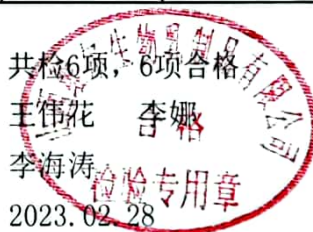 共检6项，6项合格
王伟花 李娜
李海涛
2023.02.28
生物
制品有限公司
合格
检验专用章